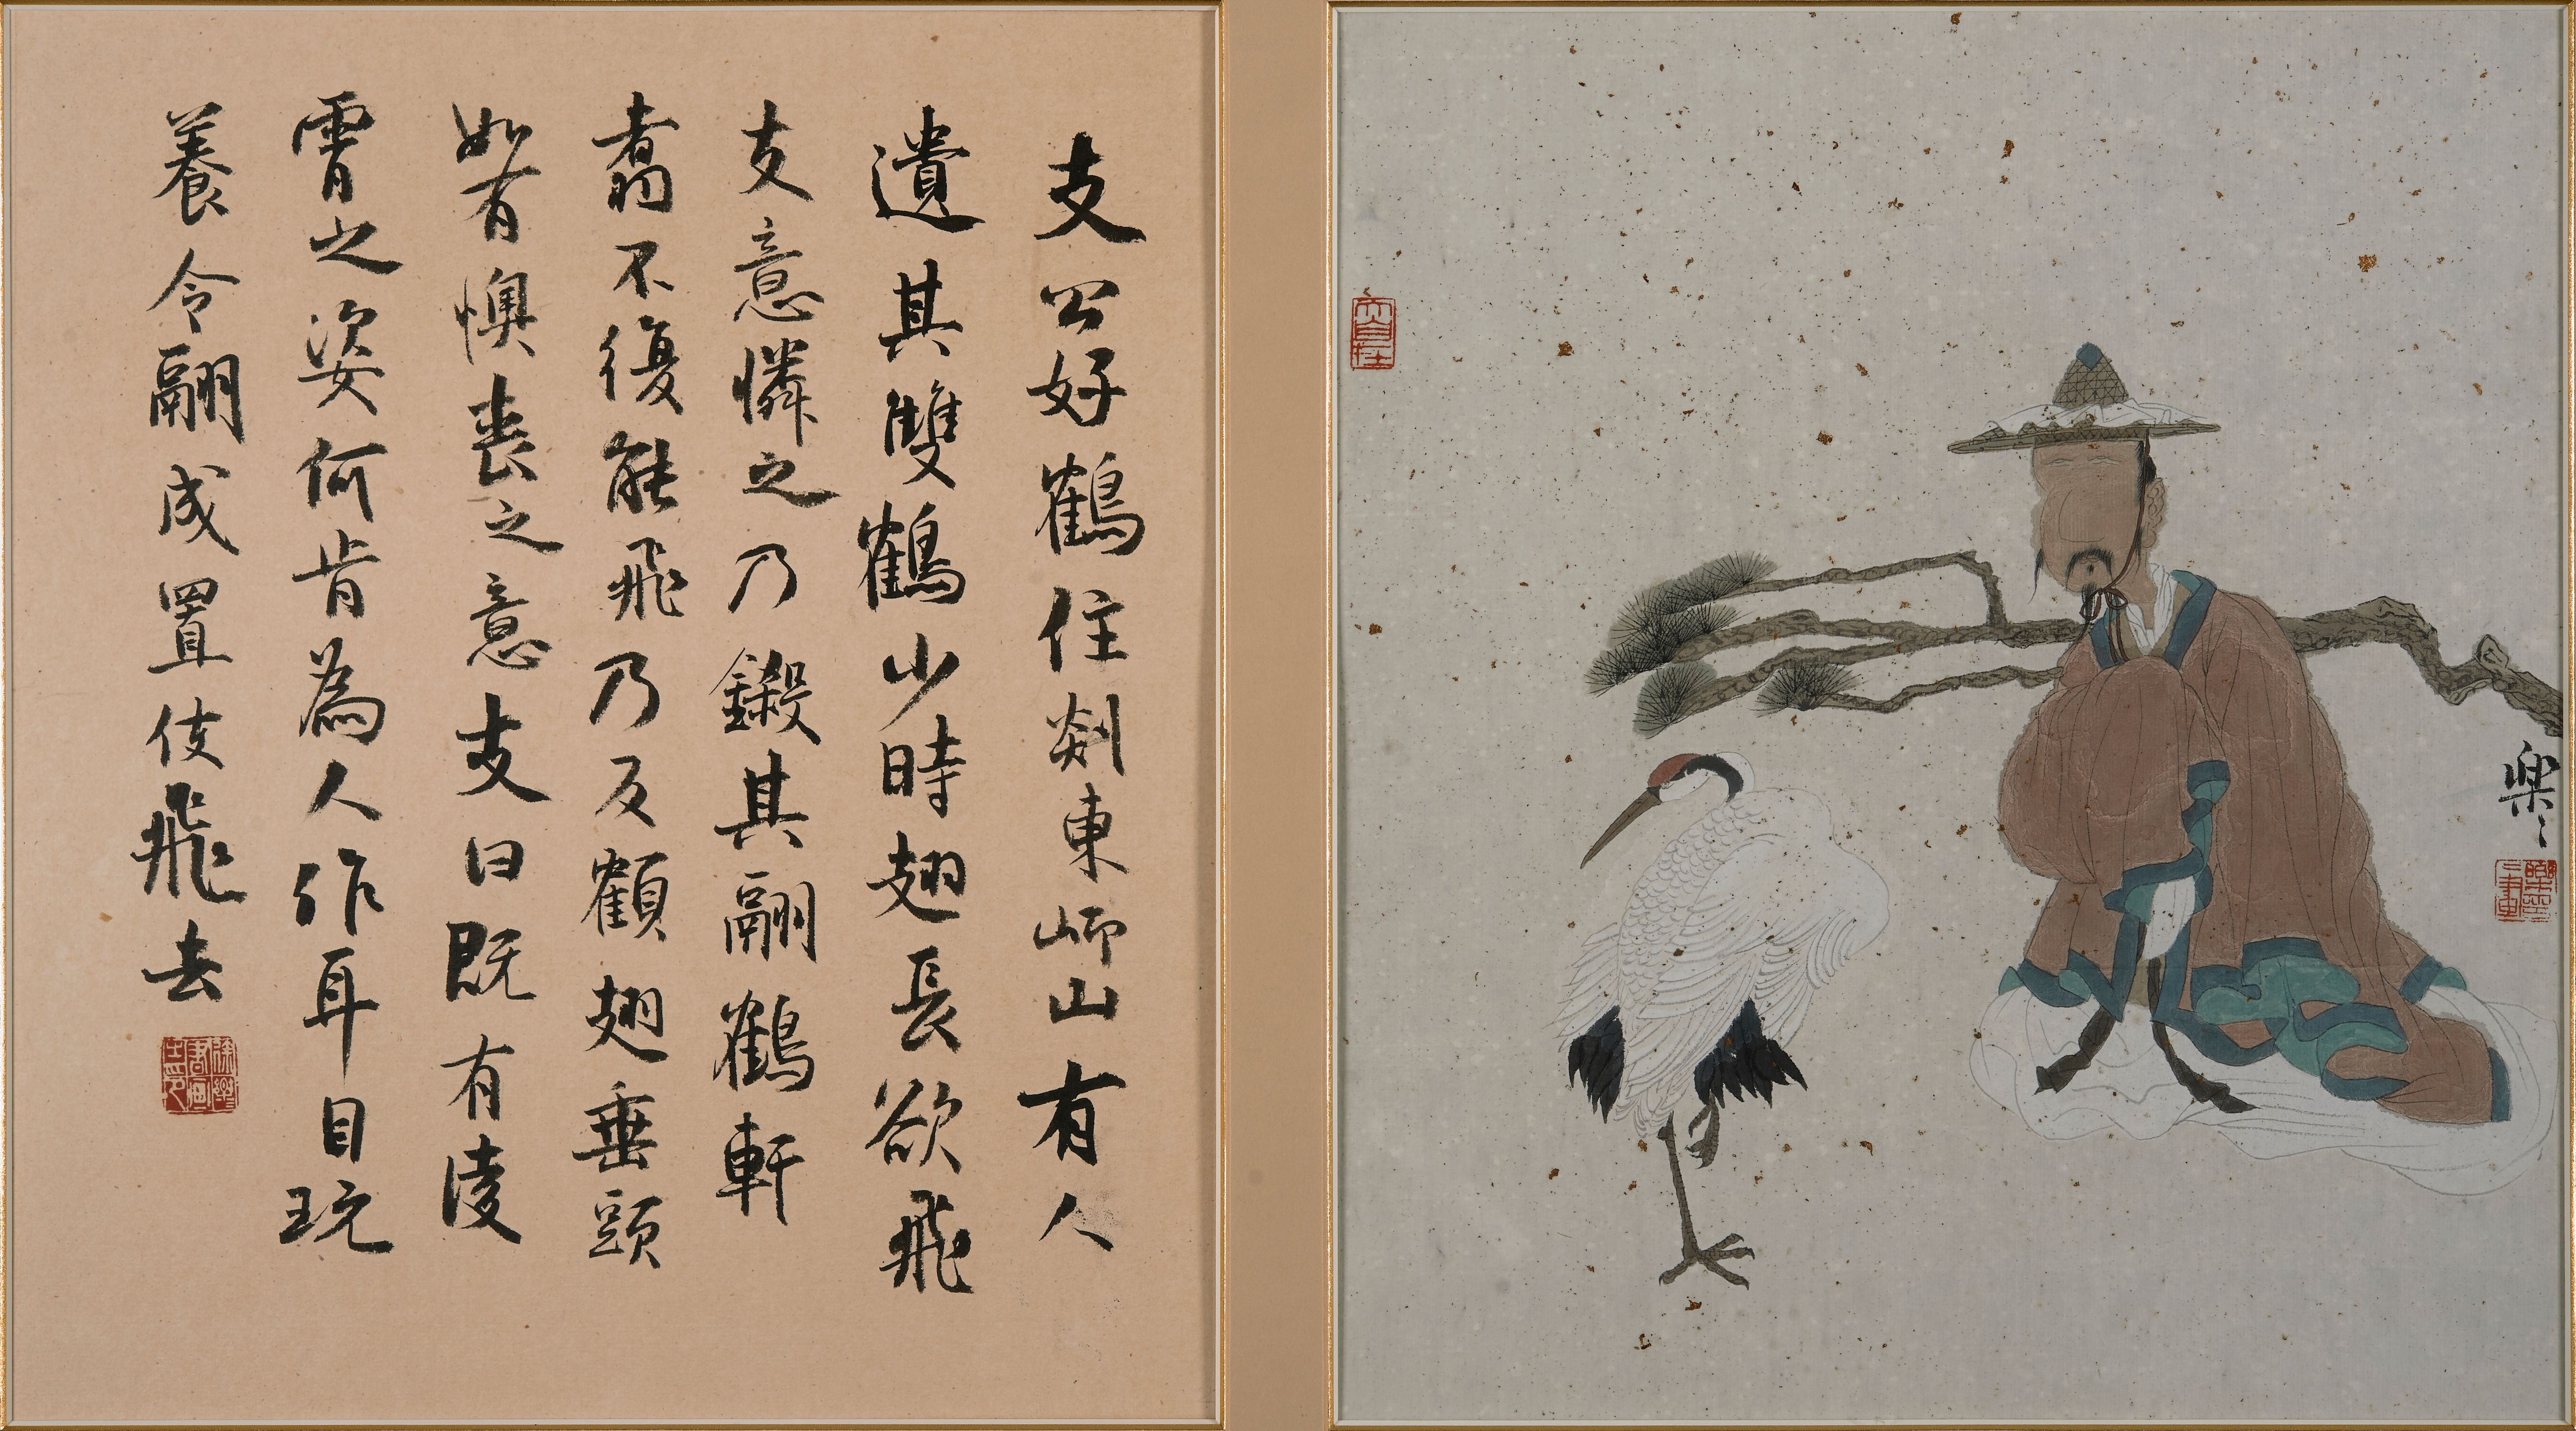 支公好鶴住剡東岇山有人
遺其雙鶴少時翅長欲飛
支意憐之乃鎩其翮鶴軒
翥不復能飛乃反顧翅垂頭
如有懊喪之意支曰既有凌
霄之姿何肯為人作耳目玩
養令翮成置使飛去
樂〻